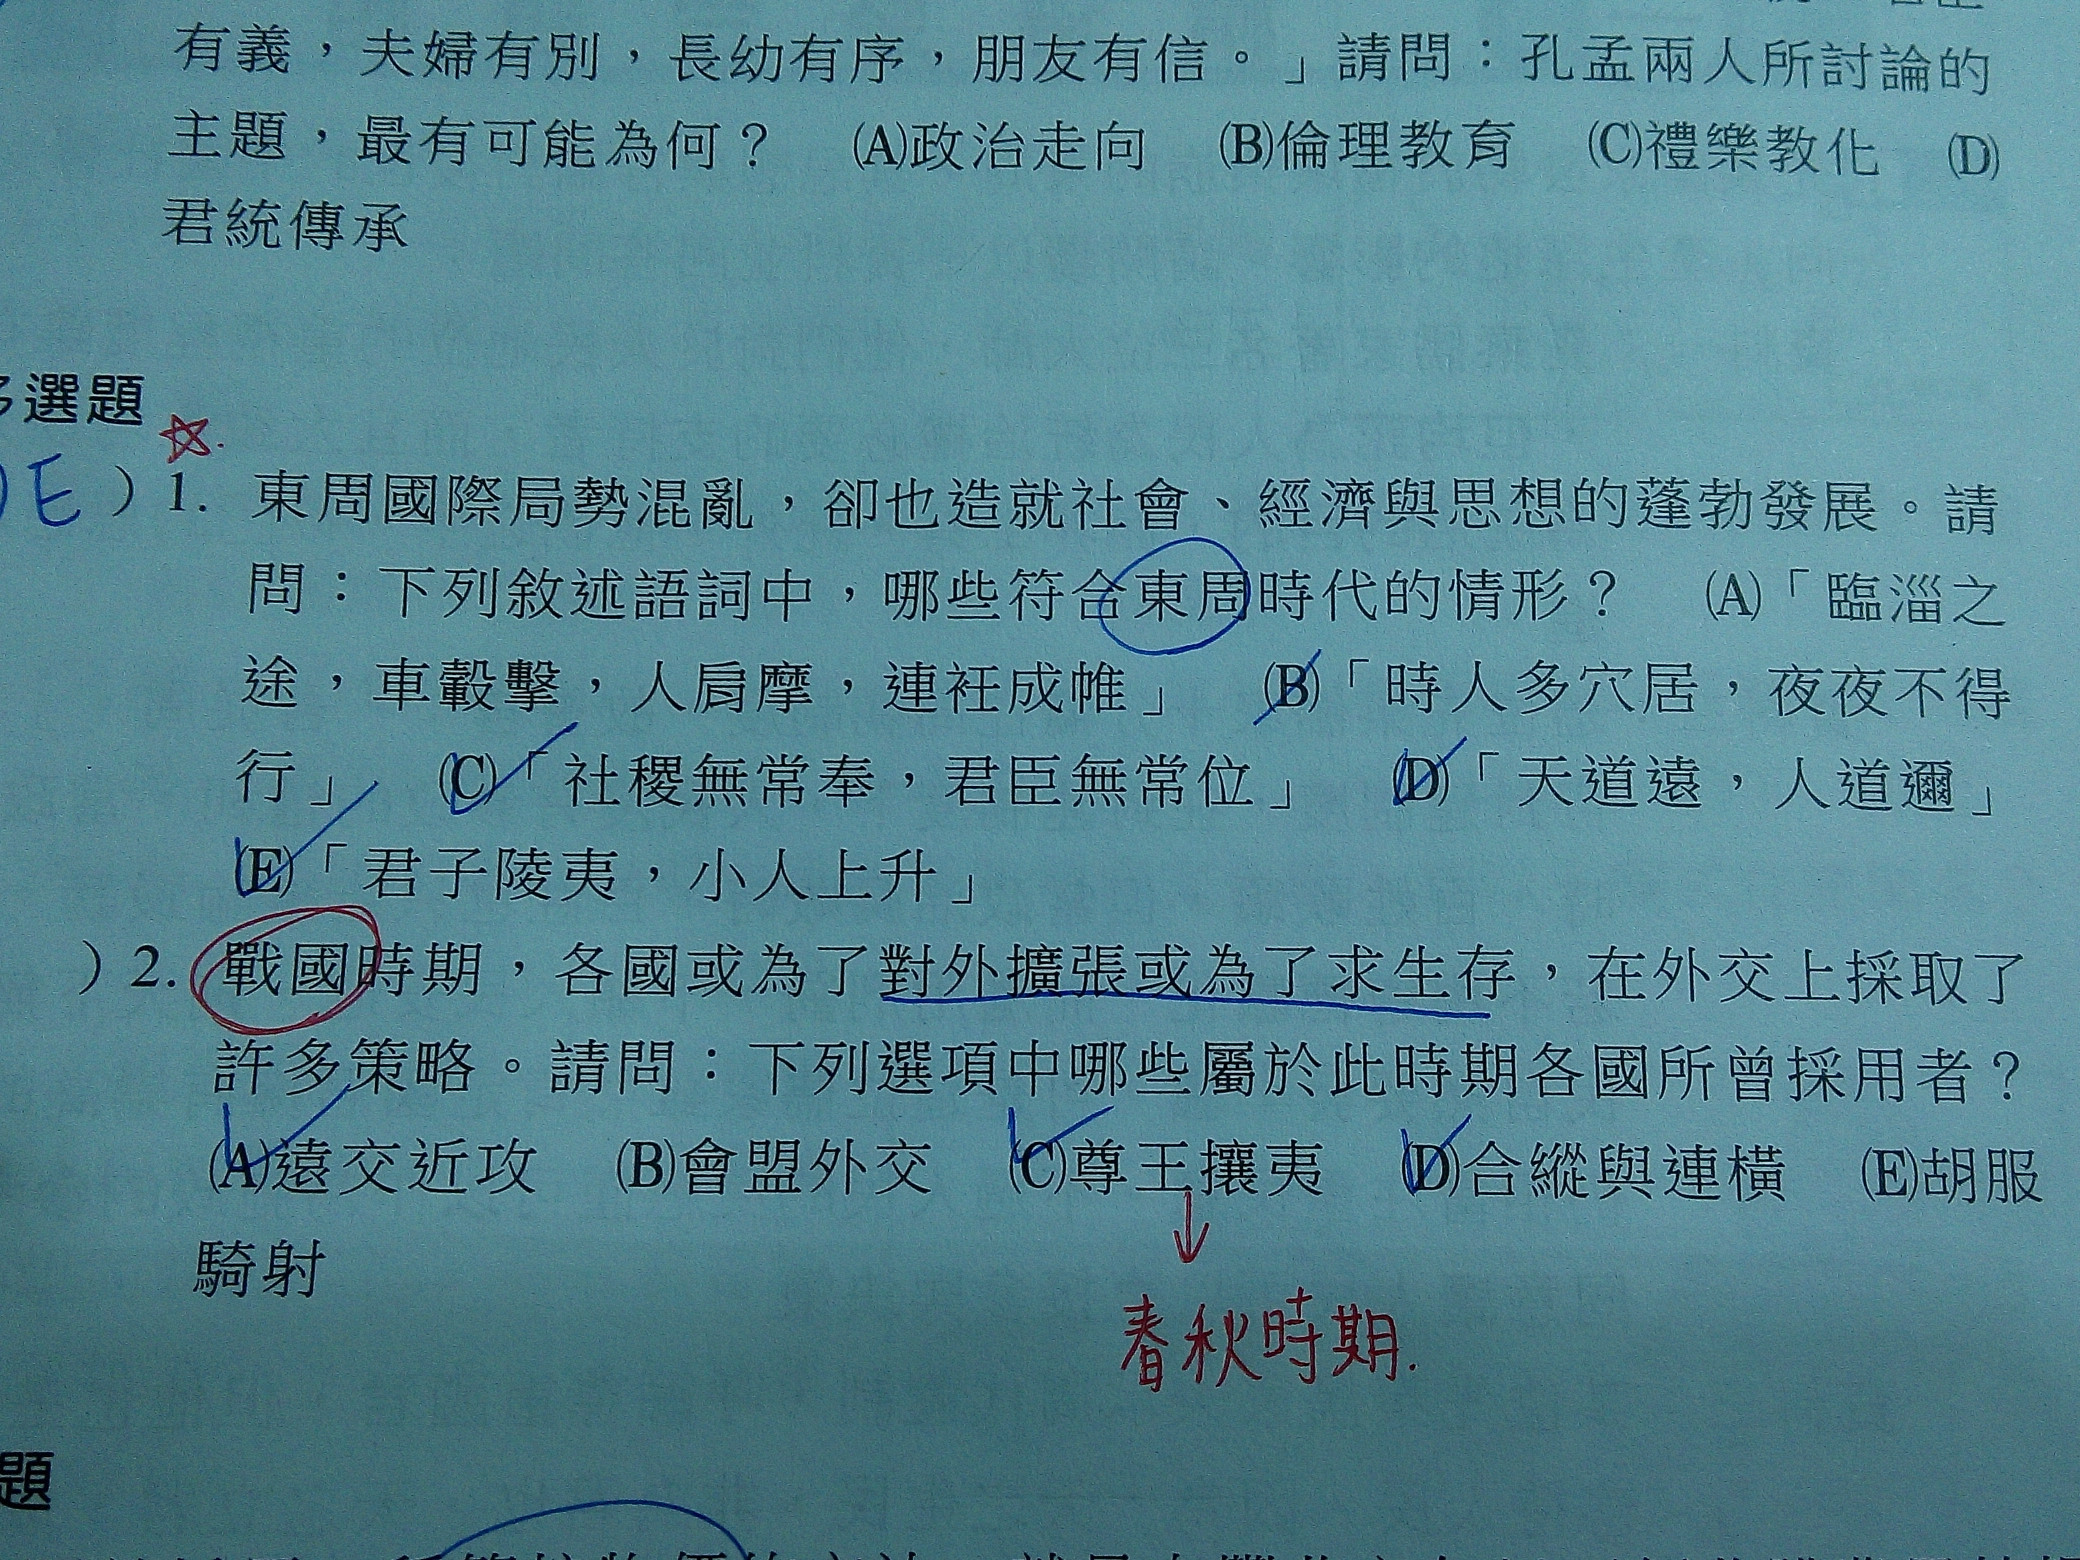 有義，夫婦有別，長幼有序，朋友有信。」請問：孔孟兩人所討論的
主題，最有可能為何？ (A)政治走向 (B)倫理教育 (C)禮樂教化 (D)
君統傳承
選題
E ）1. 東周國際局勢混亂，卻也造就社會、經濟與思想的蓬勃發展。請
問：下列敘述語詞中，哪些符合東周時代的情形？ (A)「臨淄之
途，車轂擊，人肩摩，連衽成帷」 (B)「時人多穴居，夜夜不得
行」 (C)「社稷無常奉，君臣無常位」 (D)「天道遠，人道邇」
(E)「君子陵夷，小人上升」
）2. 戰國時期，各國或為了對外擴張或為了求生存，在外交上採取了
許多策略。請問：下列選項中哪些屬於此時期各國所曾採用者？
(A)遠交近攻 (B)會盟外交 (C)尊王攘夷 (D)合縱與連橫 (E)胡服
騎射
春秋時期.
題